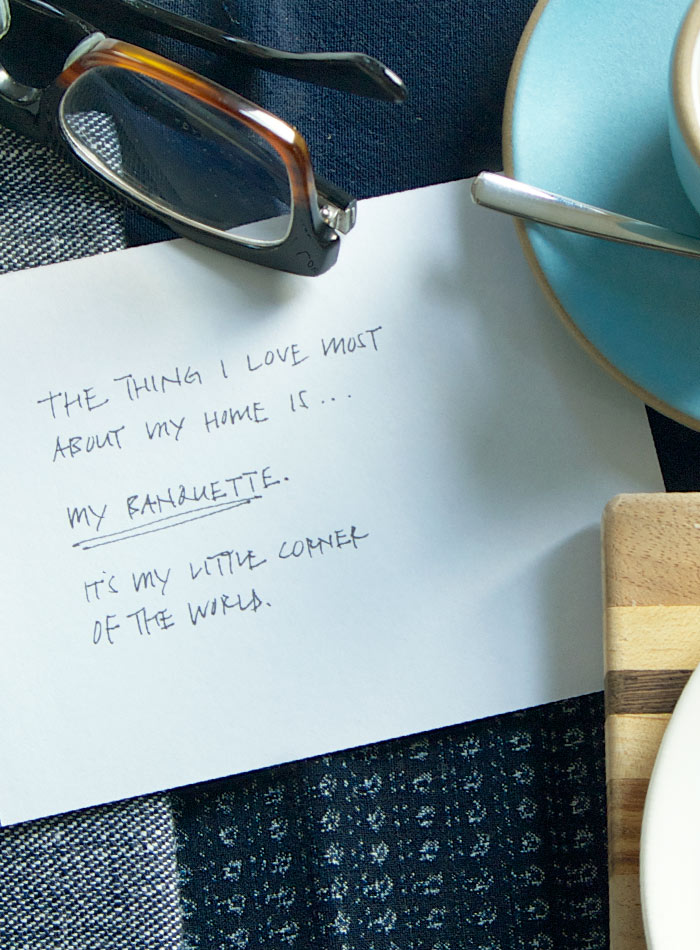 THE THING I LOVE MOST
ABOUT MY HOME IS...
MY BANQUETTE.
IT'S MY LITTLE CORNER
OF THE WORLD.